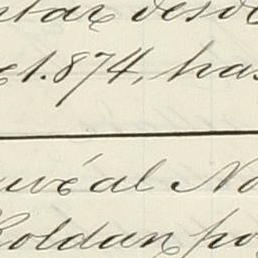 ntar desde
e 1.874, has
uvé al No
Roldan po